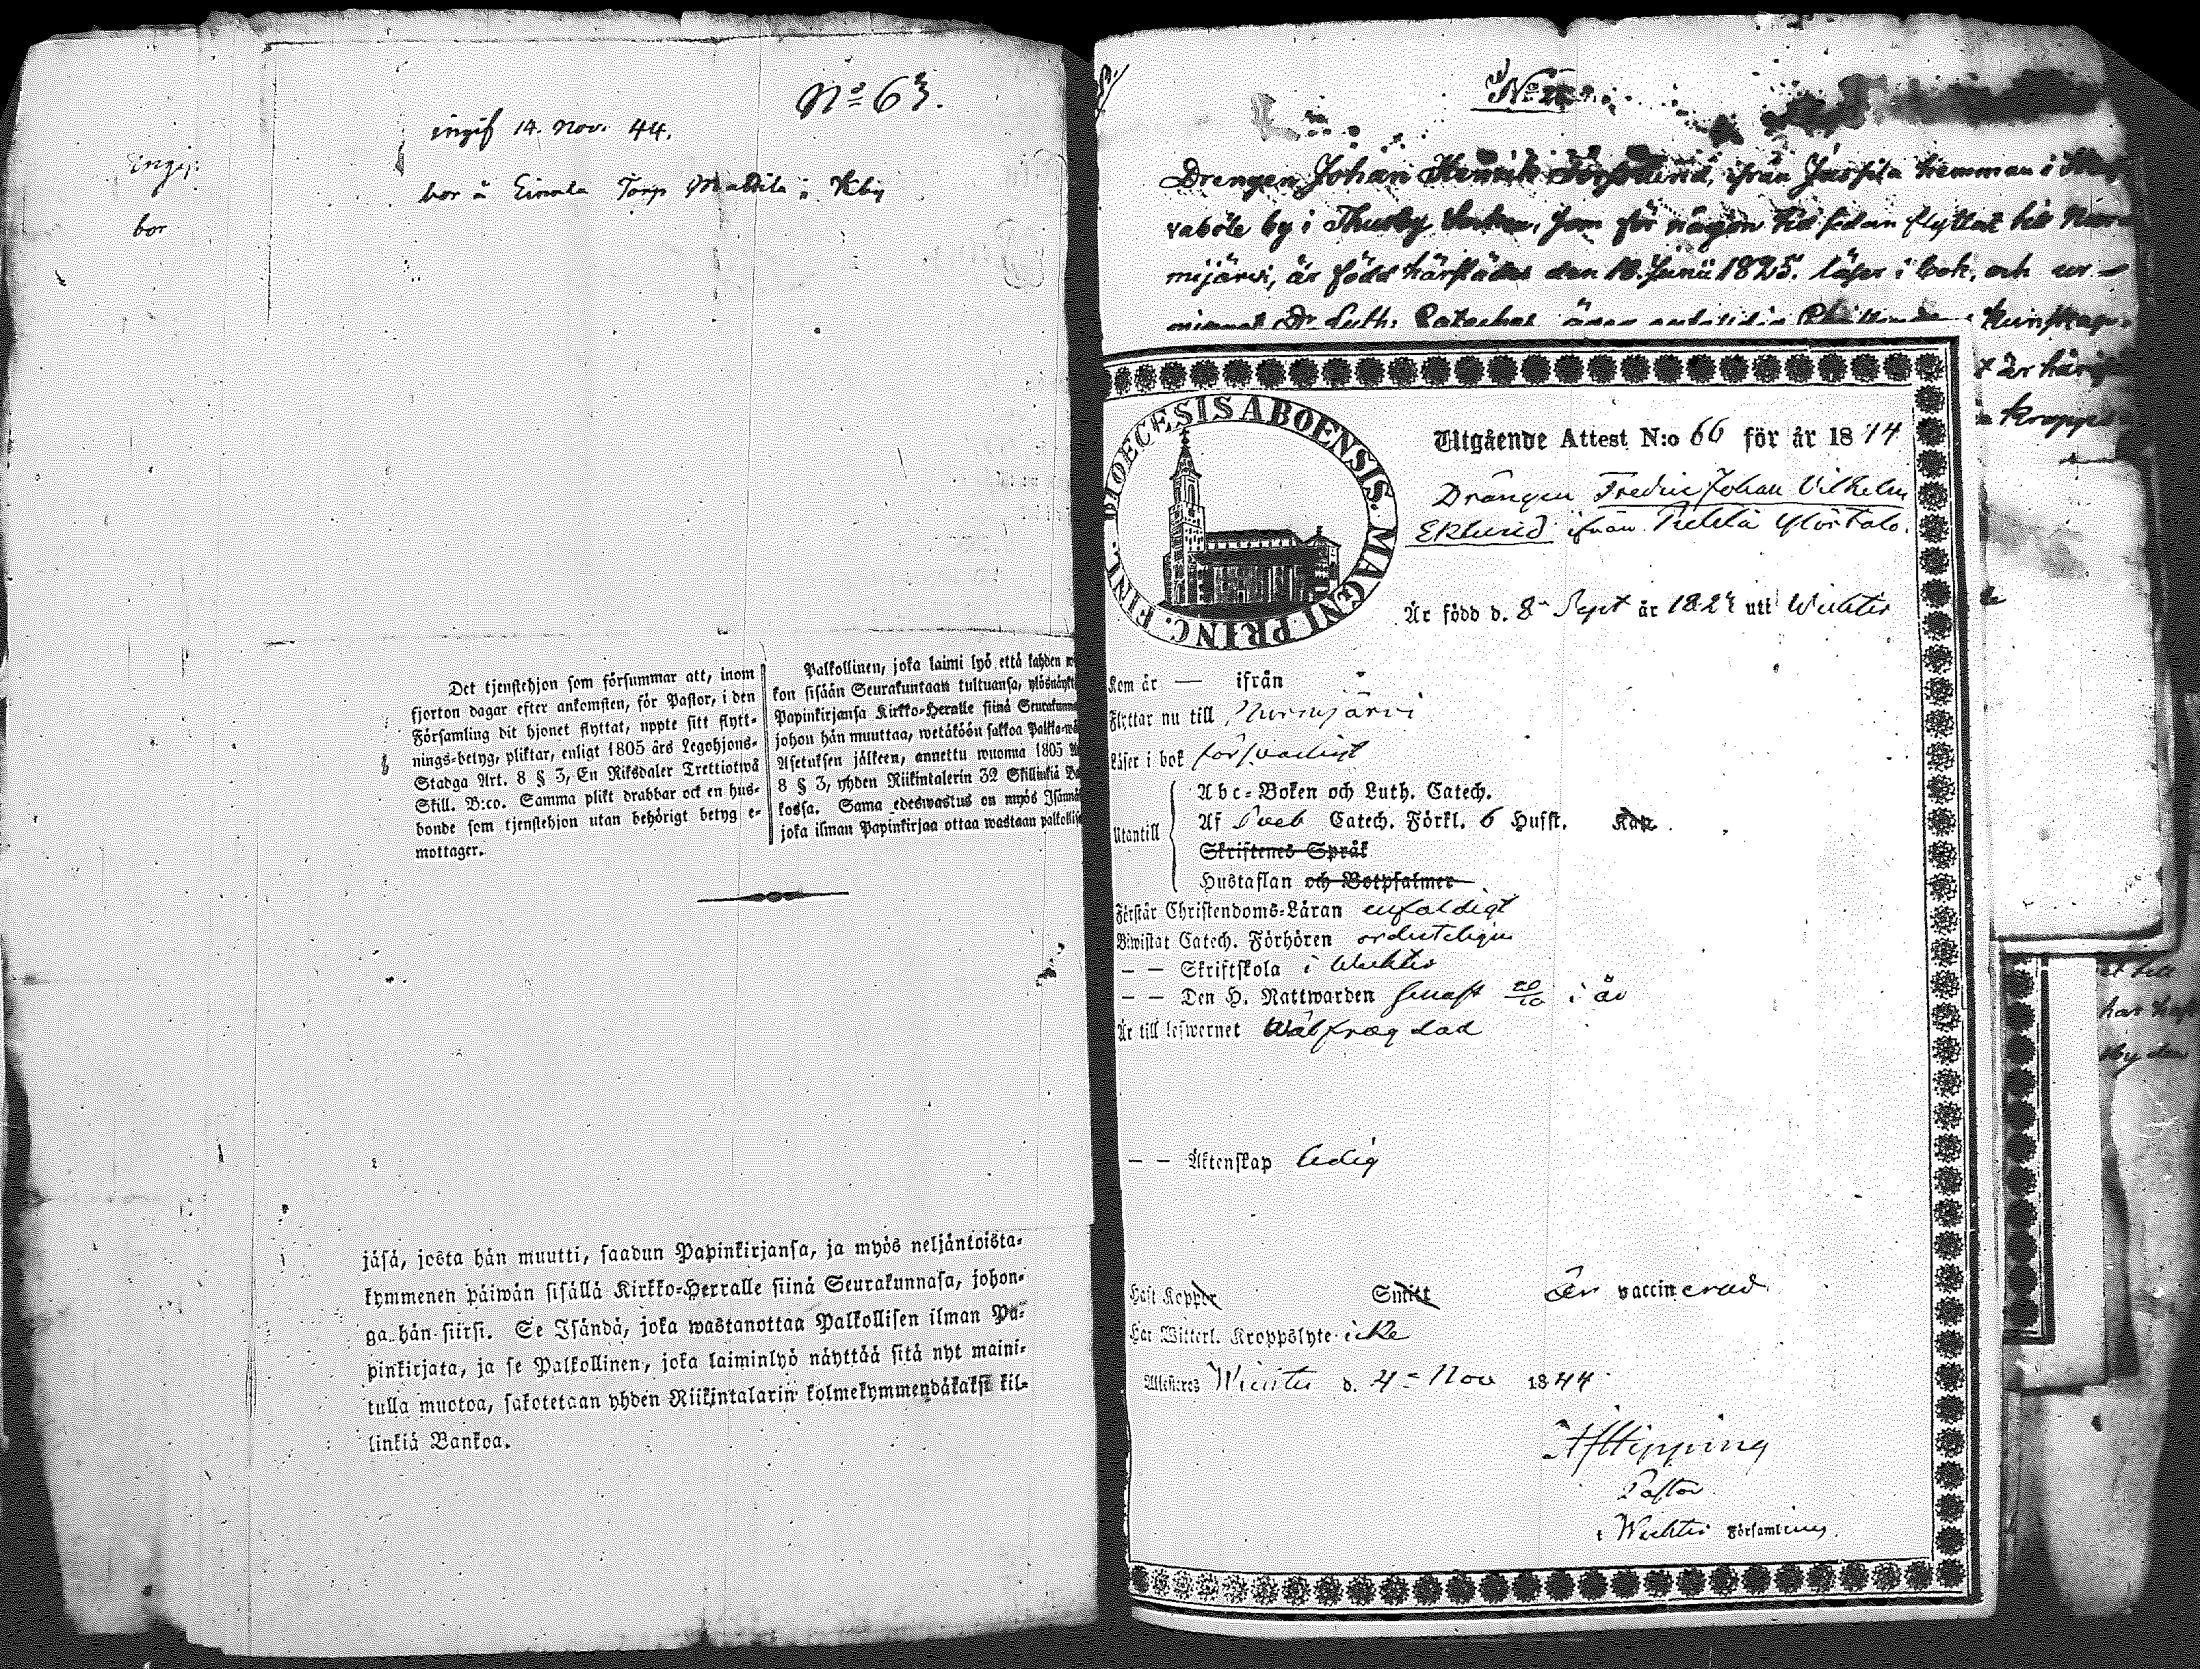 No 63.
ingif 14. Nov. 44.
bor å Eirola Torp Mattila i Kby
ingif.
bor
Det tjenstehjon som försummar att, inom
fjorton dagar efter ankomsten, för Pastor, i den
Församling dit hjonet flyttat, uppte sitt flytt-
nings-betyg, pliktar, enligt 1805 års Legohjons-
Stadga Art. 8 § 3, En Riksdaler Trettiotwå
Skill. B:co. Samma plikt drabbar ock en hus-
bonde som tjenstehjon utan behörigt betyg e-
mottager.
Palkollinen, joka laimi lyö että kahden
kon sisään Seurakuntaan tultuansa, ylösnäytt
Papinkirjansa Kirkko-Herralle siinä Seurakunna
johon hän muuttaa, wetäköön sakkoa Palkka-wä
Asetuksen jälkeen, annettu wuonna 1805
8 § 3, yhden Riikintalerin 32 Skillinkiä Ba
kossa. Sama edeswastus on myös Isännä
joka ilman Papinkirjaa ottaa wastaan palkollis
jäsä, josta hän muutti, saadun Papinkirjansa, ja myös neljäntoista-
kymmenen päiwän sisällä Kirkko-Herralle siinä Seurakunnasa, johon-
ga hän siirsi. Se Isändä, joka wastanottaa Palkollisen ilman Pa-
pinkirjata, ja se Palkollinen, joka laiminlyö näyttää sitä nyt maini-
tulla muotoa, sakotetaan yhden Riikintalarin kolmekymmendäkaksi kil-
linkiä Bankoa.
No
Drengen Johan Henrik ifrån Jussila hemman i
vaböle by i Thusby Socken, som för någon tid sedan flyttat till Nur
mijärvi, är född härstädes den 18. Junii 1825. läser i bok, och ur-
Dr Luth. Cateches kunskap
är härif
kropps
DIOECESIS ABOENSIS. MAGNI PRINC. FINL.
Utgående Attest N:o 66 för år 1844
Drängen Fredric Johan Vilhelm
Eklund ifrån
Är född d. 8 Sept år 1824 uti Wichtis
Kom år — ifrån
Flyttar nu till Nurmijärvi
Läser i bok försvarligt
Utantill
Abc-Boken och Luth. Catech.
Af Sveb Catech. Förkl. 6 Hufst. Kap.
Skriftenes Språk
Hustaflan och Botpsalmer
Förstår Christendoms-Läran enfaldigt
Biwistat Catech. Förhören ordenteligen
— — Skriftskola i Wichtis
— — Den H. Nattwarden senast 20/10 i år
Är till lefwernet Wälfrægdad
— — Äktenskap ledig
Haft Koppor Smitt är vaccinerad
Har Witterl. Kroppslyte icke
Attesteras Wichtis d. 4 Nov 1844
Hipping
Pastor
i Wichtis Församling.